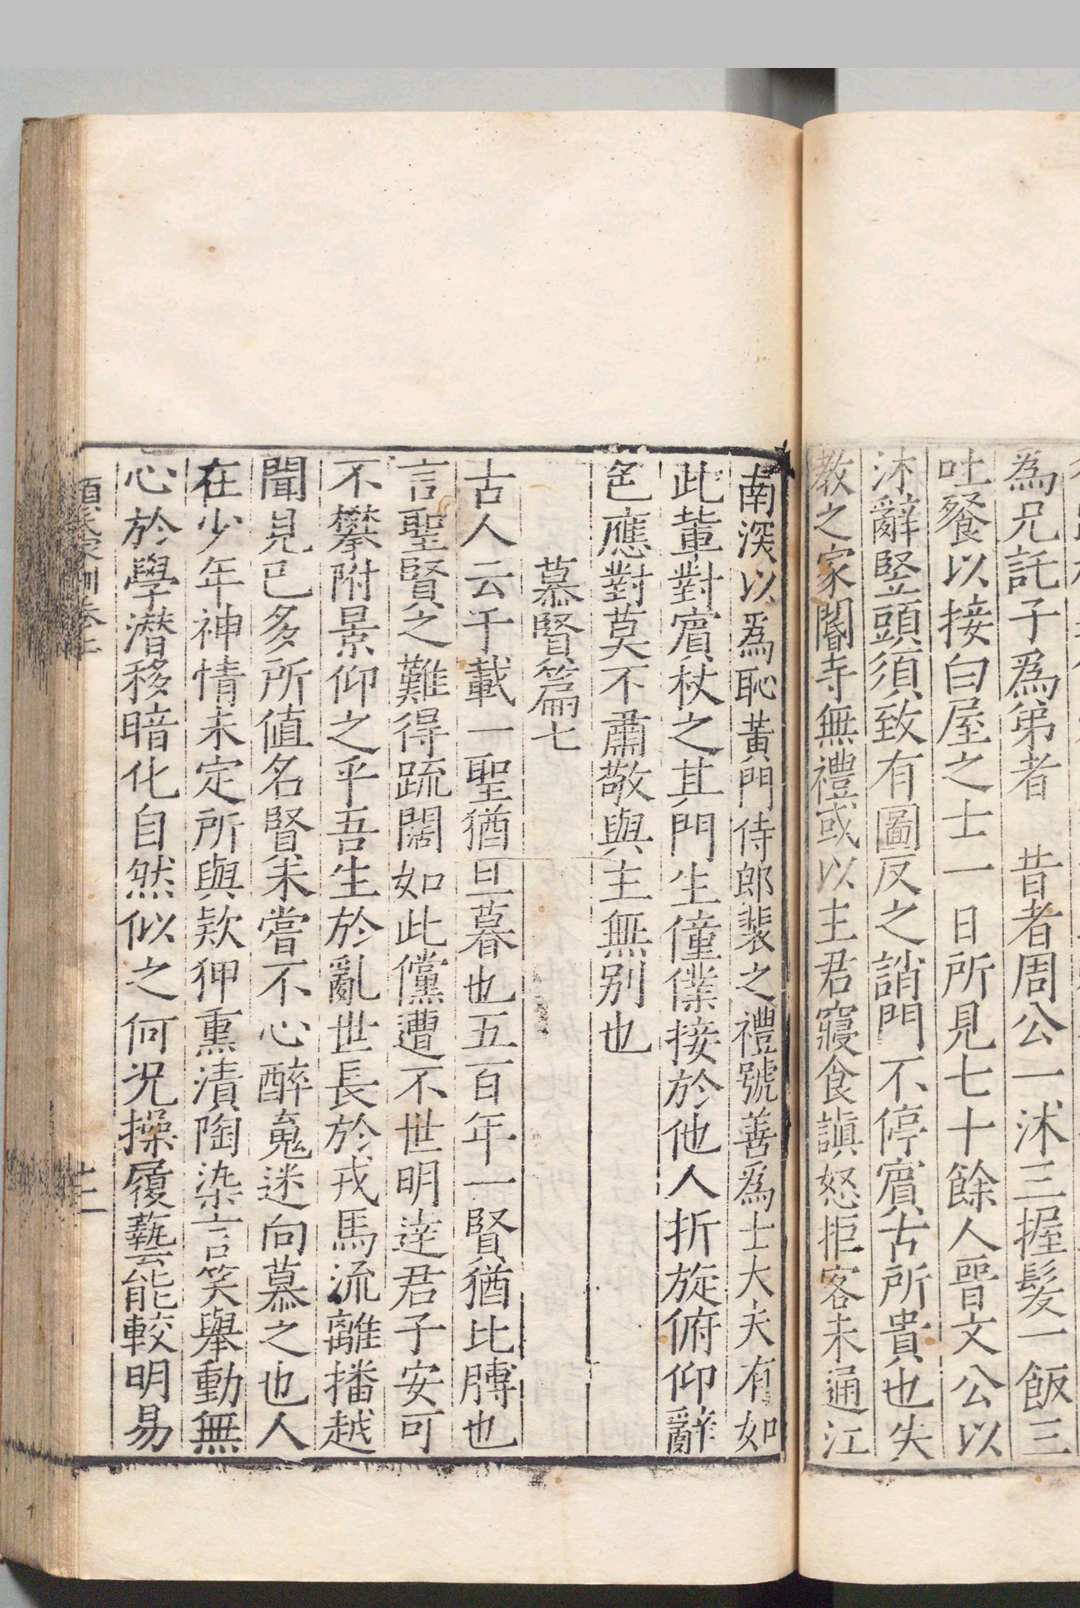 為兄託子為弟者　昔者周公一沐三握髪一飯三
吐餐以接白屋之士一日所見七十餘人晉文公以
沐辭竪頭須致有圖反之誚門不停賓古所貴也失
教之家閽寺無禮或以主君寢食嗔怒拒客未通江
南深以爲恥黃門侍郎裴之禮號善爲士大夫有如
此輩對賓杖之其門生僮僕接於他人折旋俯仰辭
色應對莫不肅敬與主無别也
慕賢篇七
古人云千載一聖猶旦暮也五百年一賢猶比膊也
言聖賢之難得疏闊如此儻遭不世明逹君子安可
不攀附景仰之乎吾生於亂世長於戎馬流離播越
聞見已多所值名賢未嘗不心醉䰟迷向慕之也人
在少年神情未定所與欵狎熏漬陶染言笑舉動無
心於學潜移暗化自然似之何况操履藝能較明易
顏氏家訓卷上